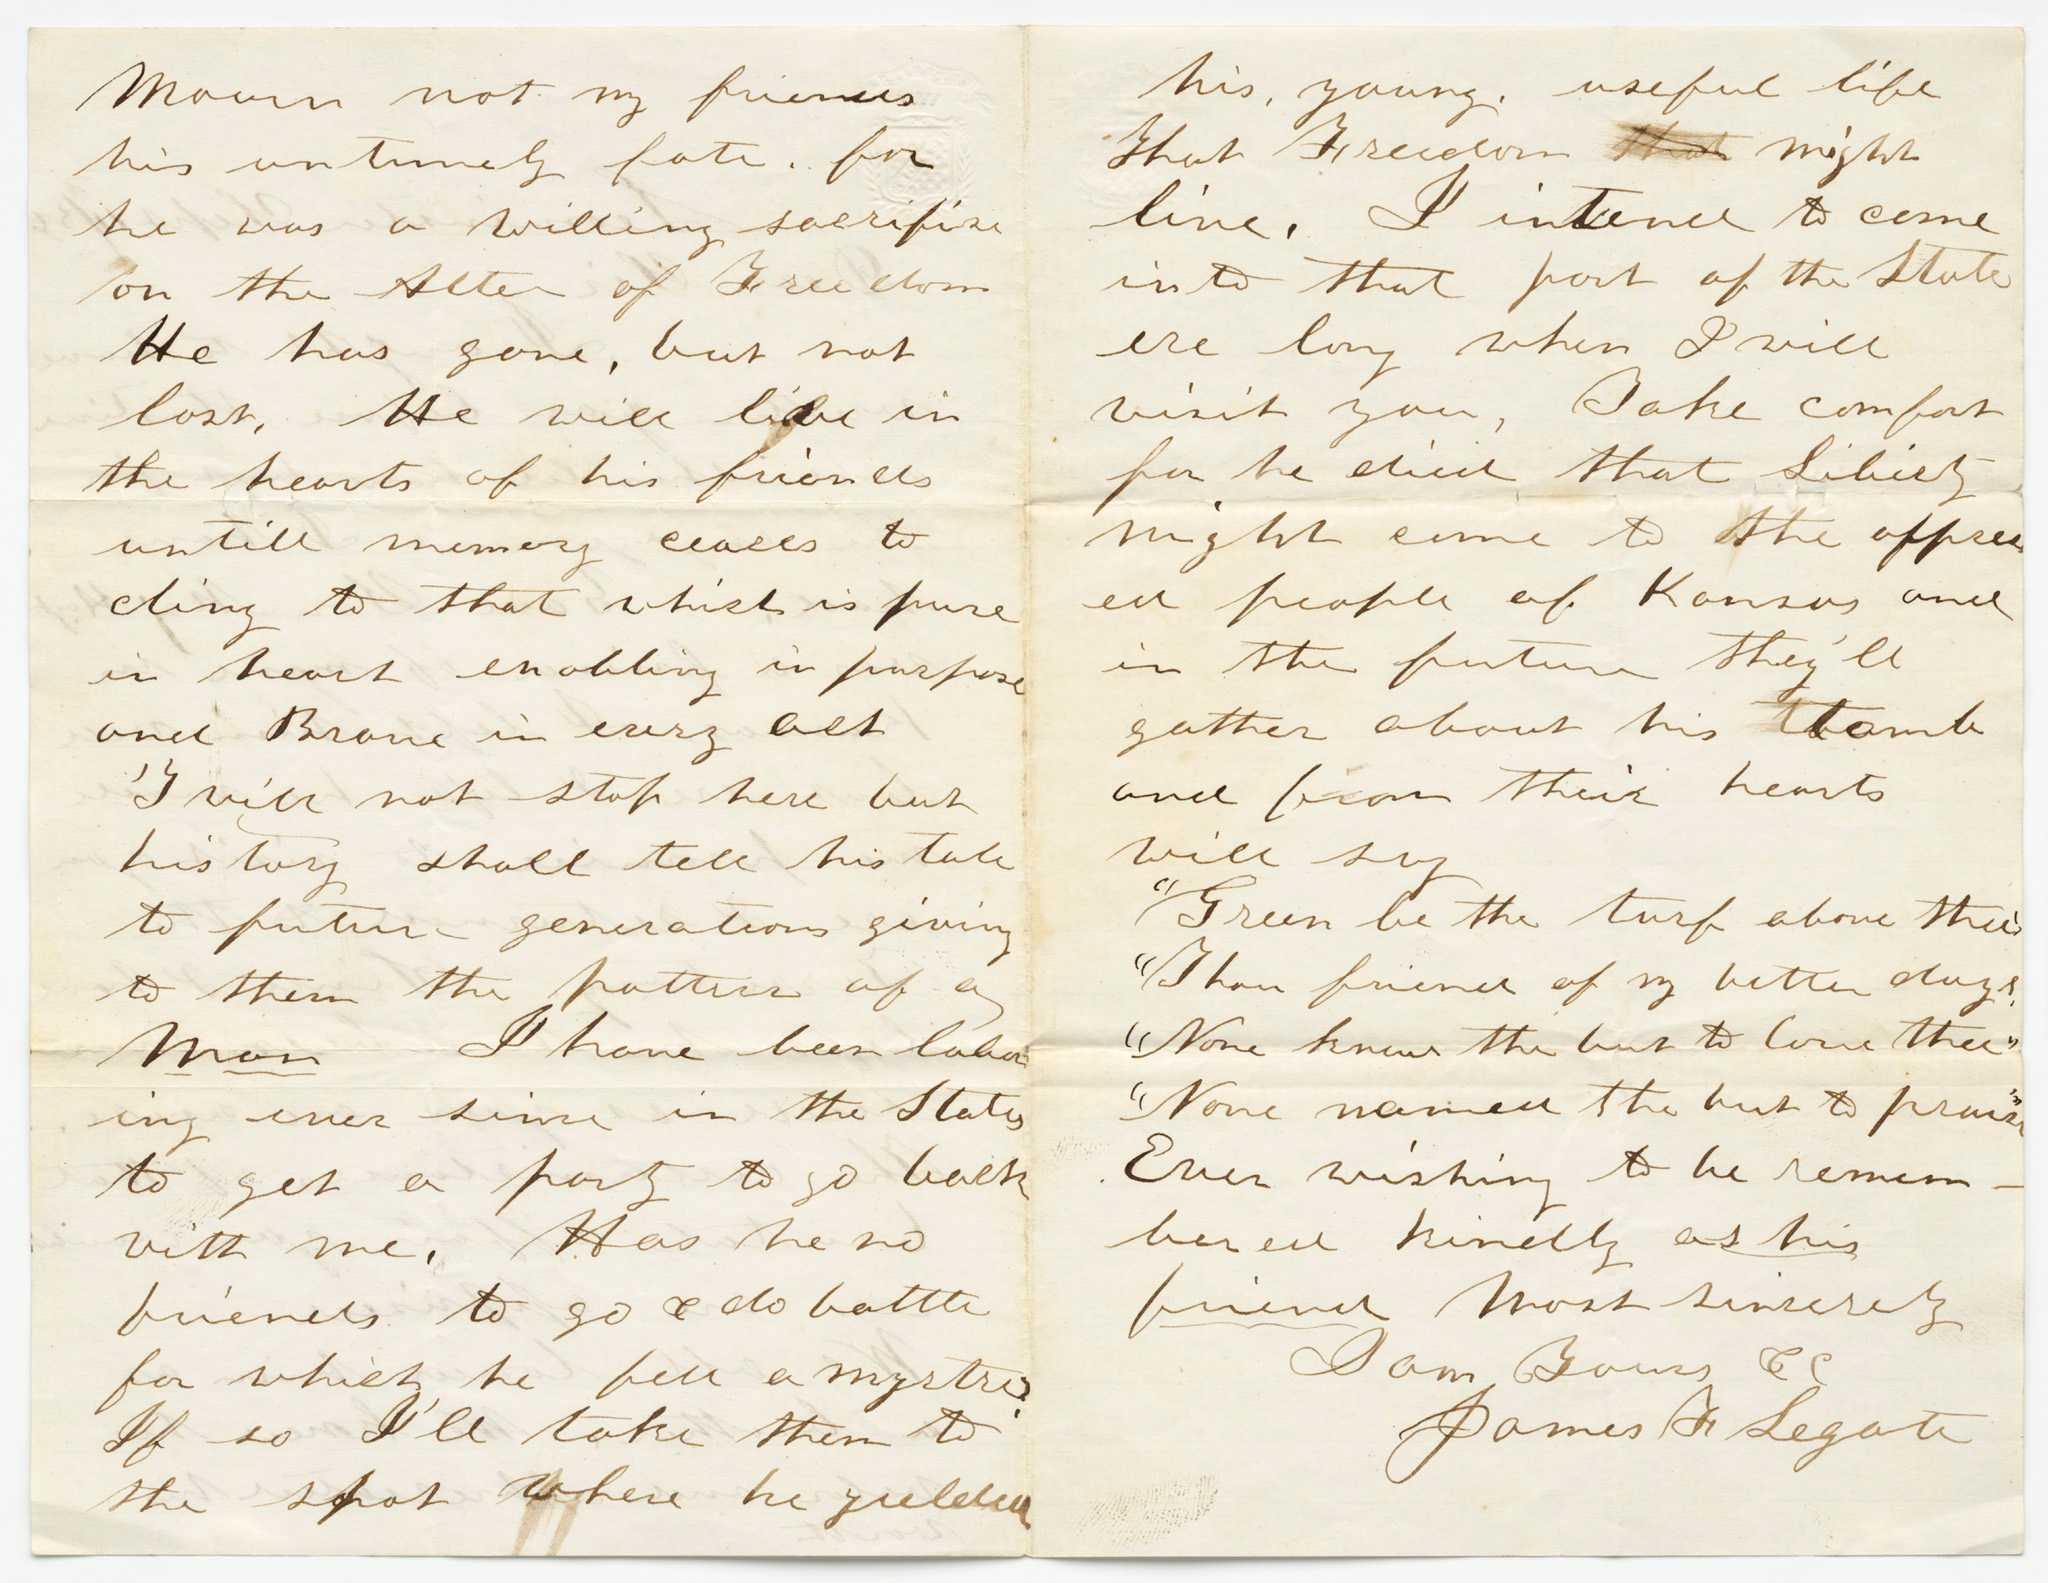 Mourn not my friends
his untimely fate. for
he was a willing sacrifise
on the Alter of Freedom
He has gone, but not
lost. He will live in
the hearts of his friends
untill memory ceases to
cling to that which is pure
in heart enobling in purpose
and Brave in every act
I will not stop here but
history shall tell his tale
to future generations giving
to them the pattern of a
Man I have been labor
ing ever since in the States
to get a party to go back
with me. Has he no
friends to go & do battle
for which he fell a mystre?
If so I'll take them to
the spot where he yielded
his, young, useful life
that Freedom that might
live. I intend to come
into that part of the State
ere long when I will
visit you, Take comfort
for he died that Liberty
might come to the oppress
ed people of Kansas and
in the future they'll
gather about his tomb
and from their hearts
will say
"Green be the turf above thee
"Thou friend of my better days,
"None knew the but to love thee"
"None named the but to praise"
Ever wishing to be remem-
bered kindly as his
friend Most sincerely
I am Yours &c
James F Legate